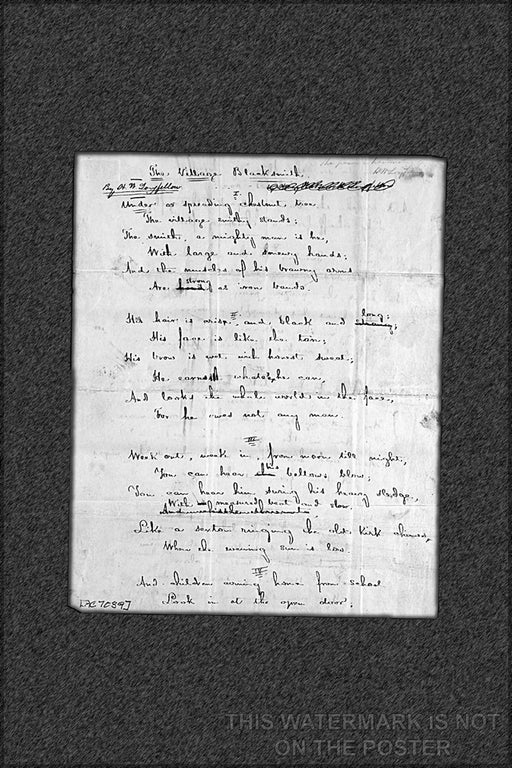 The Village Blacksmith.
By H. W. Longfellow
I.
Under a spreading chestnut tree
The village smithy stands;
The smith, a mighty man is he,
With large and sinewy hands;
And the muscles of his brawny arms
strong
Are hard as iron bands.
II
long;
His hair is crisp, and black and
His face is like the tan;
His brow is wet with honest sweat;
He earns whate'er he can,
And looks the whole world in the face,
For he owes not any man.
III
Week out, week in, from morn till night,
his
You can hear bellows blow;
You can hear him swing his heavy sledge,
With measured beat and slow
Like a sexton ringing the old kirk chimes,
When the evening sun is low.
IV
And children coming home from school
Look in at the open door;
[AC 7039]
THIS WATERMARK IS NOT
ON THE POSTER